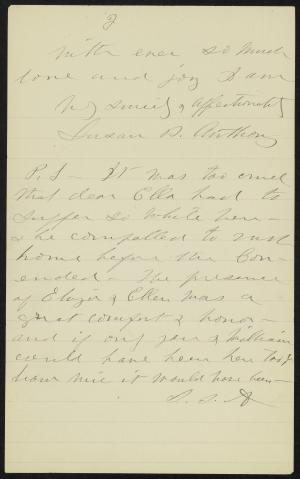 3
with ever so much
love and joy I am
very sincerely & affectionately
Susan B. Anthony
P.S - It was too cruel
that dear Ella had to
suffer so while here -
& be compelled to rush
home before the Con-
ended - The presence
of Eliza & Ellen was a
great comfort & honor -
and if only you & William
could have been here too,
how nice it would have been -
S. B. A